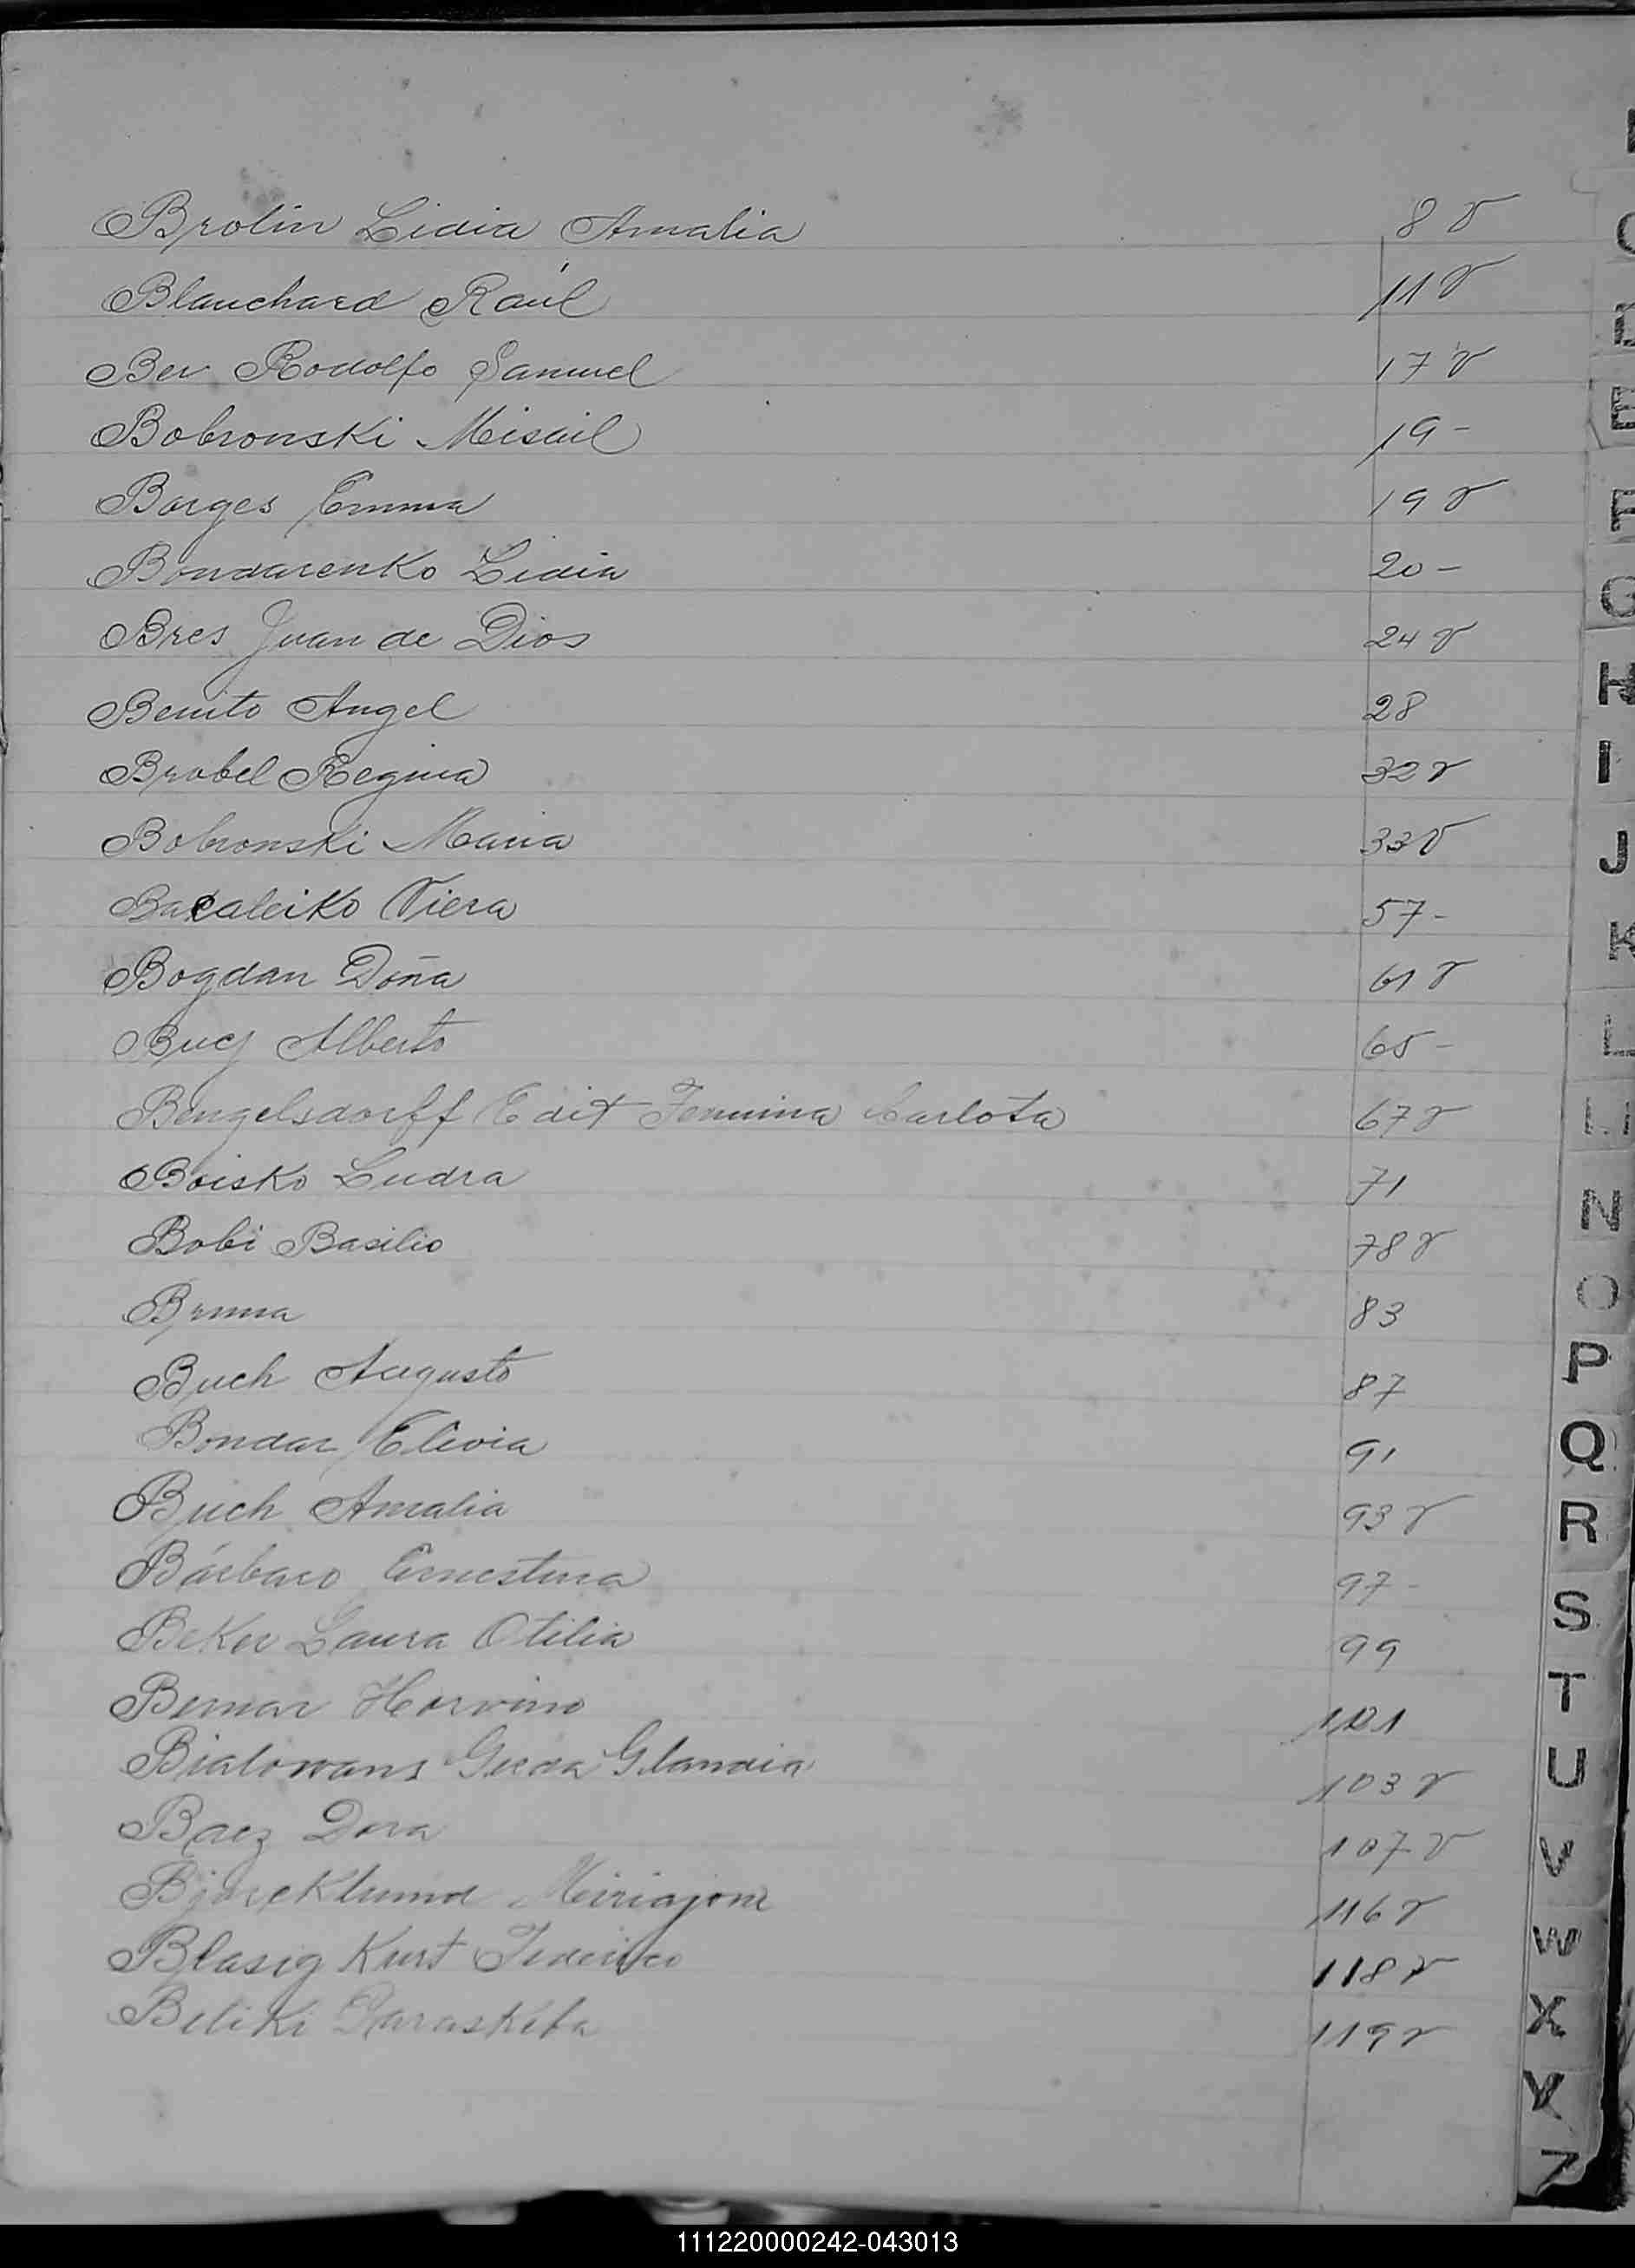 Brolin Lidia Amalia 8 v
Blanchard Raúl 11 v
Ber Rodolfo Samuel 17 v
Bobronski Misail 19 -
Borges Emma 19 v
Bondarenko Lidia 20 -
Bres Juan de Dios 24 v
Benito Angel 28
Brobel Regina 32 v
Bobronski Maria 33 v
Bacaleiko Viera 57 -
Bogdan Doña 61 v
Buej Alberto 65 -
Bengelsdorff Edit Carlota 67 v
Boisko Ludra 71
Bobi Basilio 78 v
Bruna 83
Buch Augusto 87
Bondar Elivia 91
Buch Amalia 93 v
Bárbaro Ernestina 97 -
Beker Laura Otilia 99
Bernar 101
103 v
Baez Dora 107 v
116 v
Blasig Kurt Federico 118 v
Beliki Paraskeba 119 v
E
F
G
H
I
J
K
L
N
O
P
Q
R
S
T
U
V
W
X
Y
Z
111220000242-043013